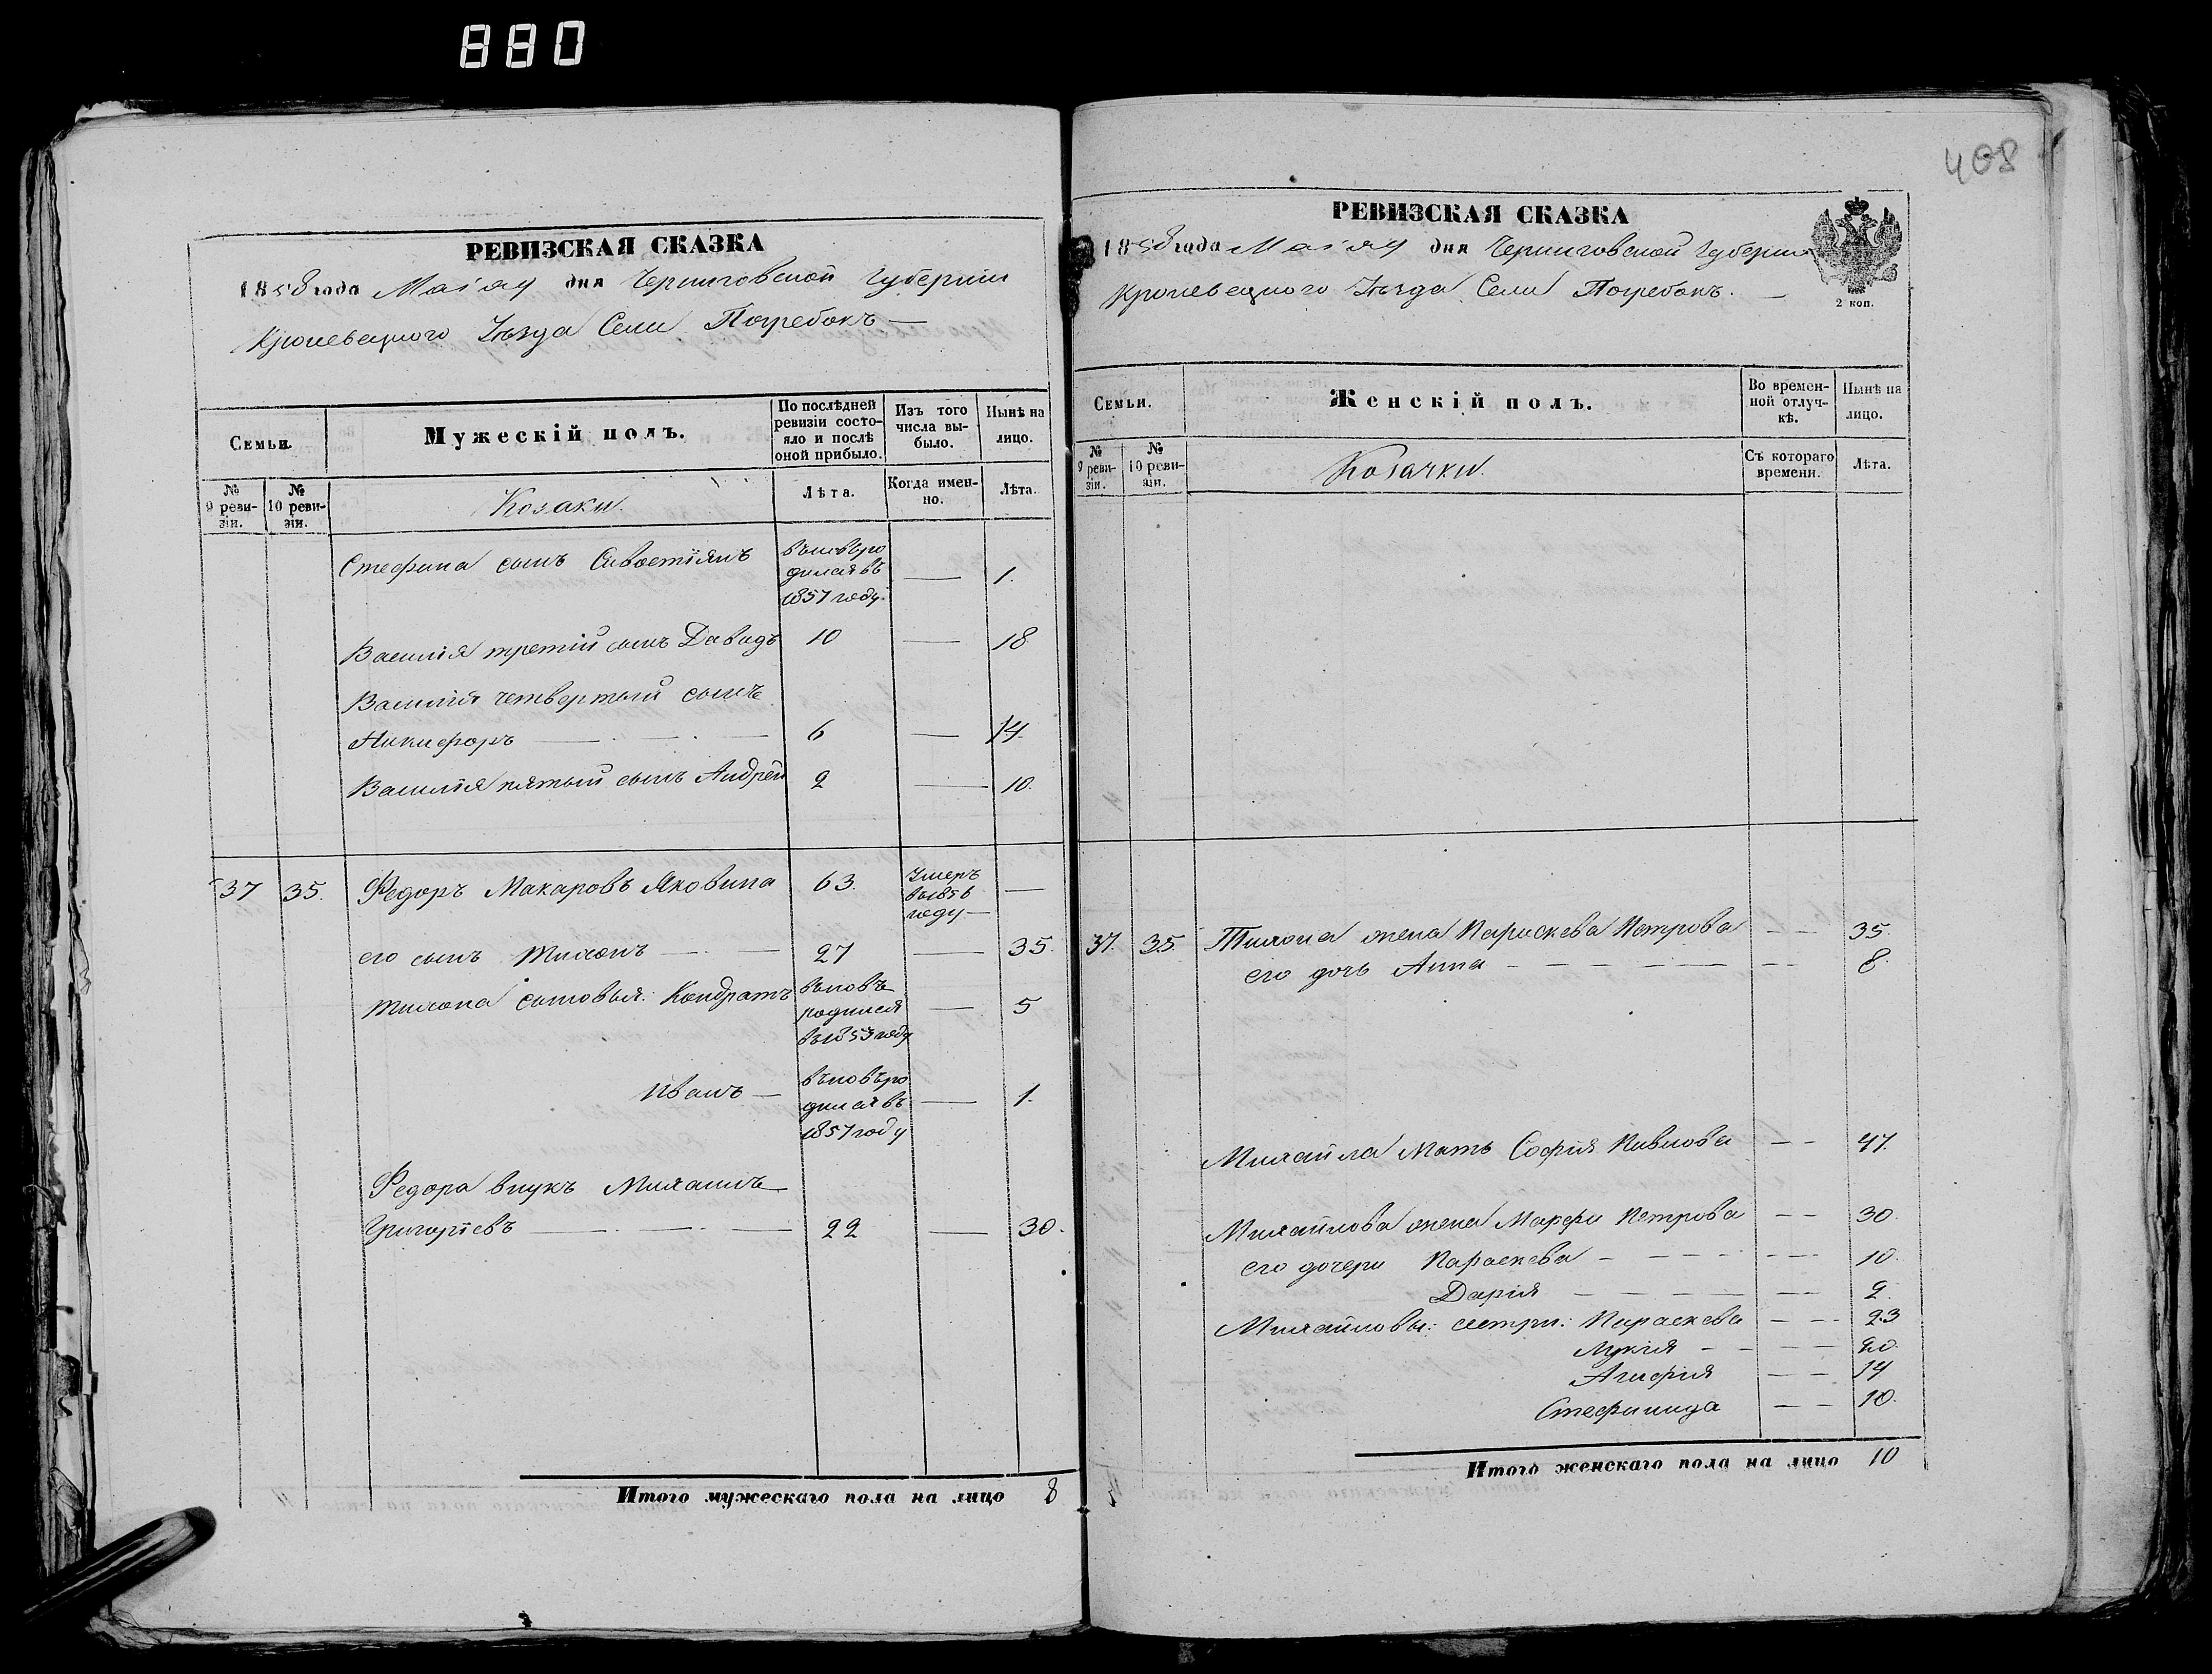 880
408
РЕВИЗСКАЯ СКАЗКА
1858 года Маія дня Черниговской Губерніи
Кролевецкого Уѣзда Села Погребокъ —
Семьи.
Мужескій полъ.
По послѣдней ревизіи состояло и послѣ оной прибыло.
Изъ того числа выбыло.
Нынѣ на лицо.
№ 9 ревизіи.
№ 10 ревизіи.
Козаки.
Лѣта.
Когда именно.
Лѣта.
Стефана сынъ Савостіянъ вновь родился въ 1857 году. — 1.
Василія третій сынъ Давидъ 10 — 18
Василія четвертый сынъ
Никифоръ — 6 — 14.
Василія пятый сынъ Андрей 2 — 10.
37 35. Федоръ Макаровъ Яковина 63. Умеръ въ 1856 году — —
его сынъ Тихонъ — 27 — 35.
Тихона сыновья: Кондратъ вновь родился въ 1853 году — 5
Иванъ — вновь родился въ 1857 году — 1.
Федора внукъ Михаилъ
Григоріевъ — 22 — 30.
Итого мужескаго пола на лицо 8
РЕВИЗСКАЯ СКАЗКА
1858 года Маія дня Черниговской Губерніи
Кролевецкого Уѣзда Села Погребокъ. —
2 коп.
Семьи.
Женскій полъ.
Во временной отлучкѣ.
Нынѣ на лицо.
№ 9 ревизіи.
№ 10 ревизіи.
Козачки.
Съ котораго времени.
Лѣта.
37. 35. Тихона жена Параскева Петрова — — 35.
его дочь Анна — — 8.
Михайла Мать Софія Павлова — — 47.
Михайлова жена Марфа Петрова — — 30.
его дочери Параскева — — 10.
Дарія — — 2.
Михайловы: сестры: Параскева — — 23
Лукія — — 20.
Агафія — — 14
Стефанида — — 10.
Итого женскаго пола на лицо 10